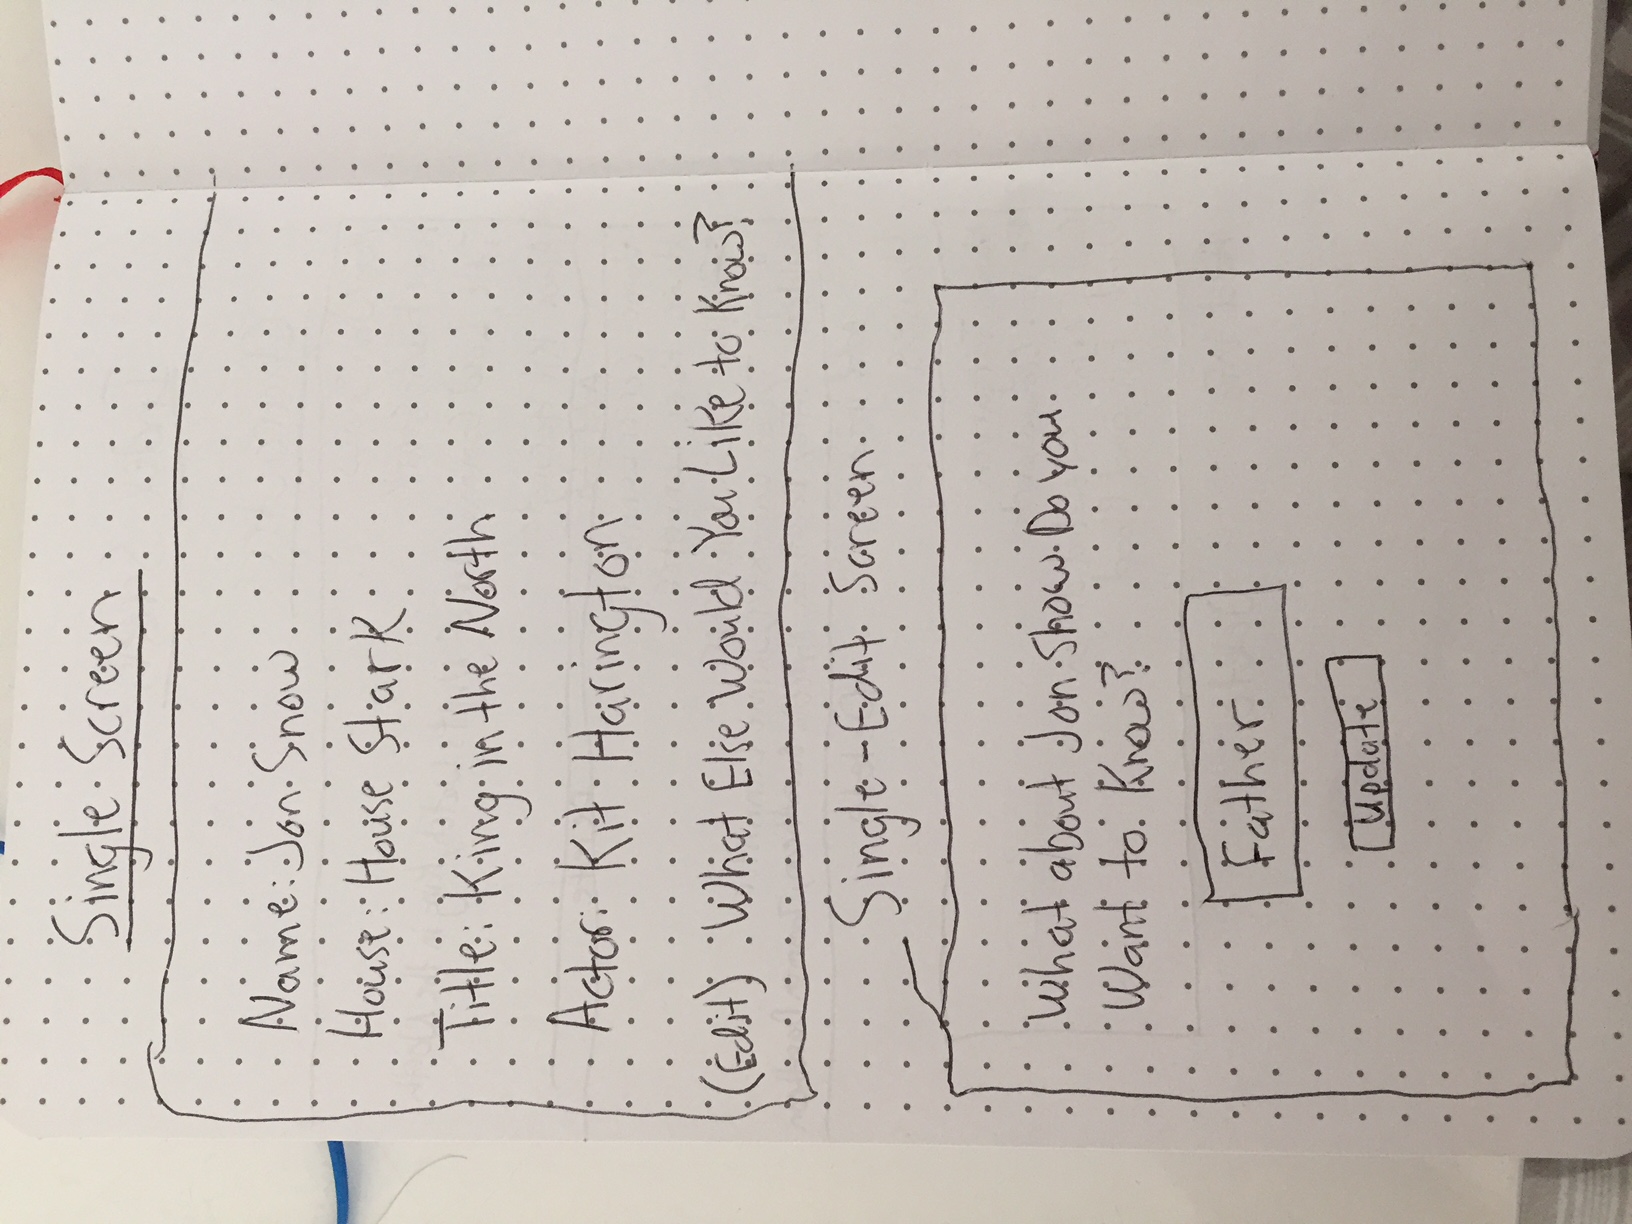 Single Screen
Name: Jon Snow
House: House Stark
Title: King in the North
Actor: Kit Harington
(Edit) What Else Would You Like to Know?
Single-Edit Screen
What about Jon Snow Do you
Want to Know?
Father
Update